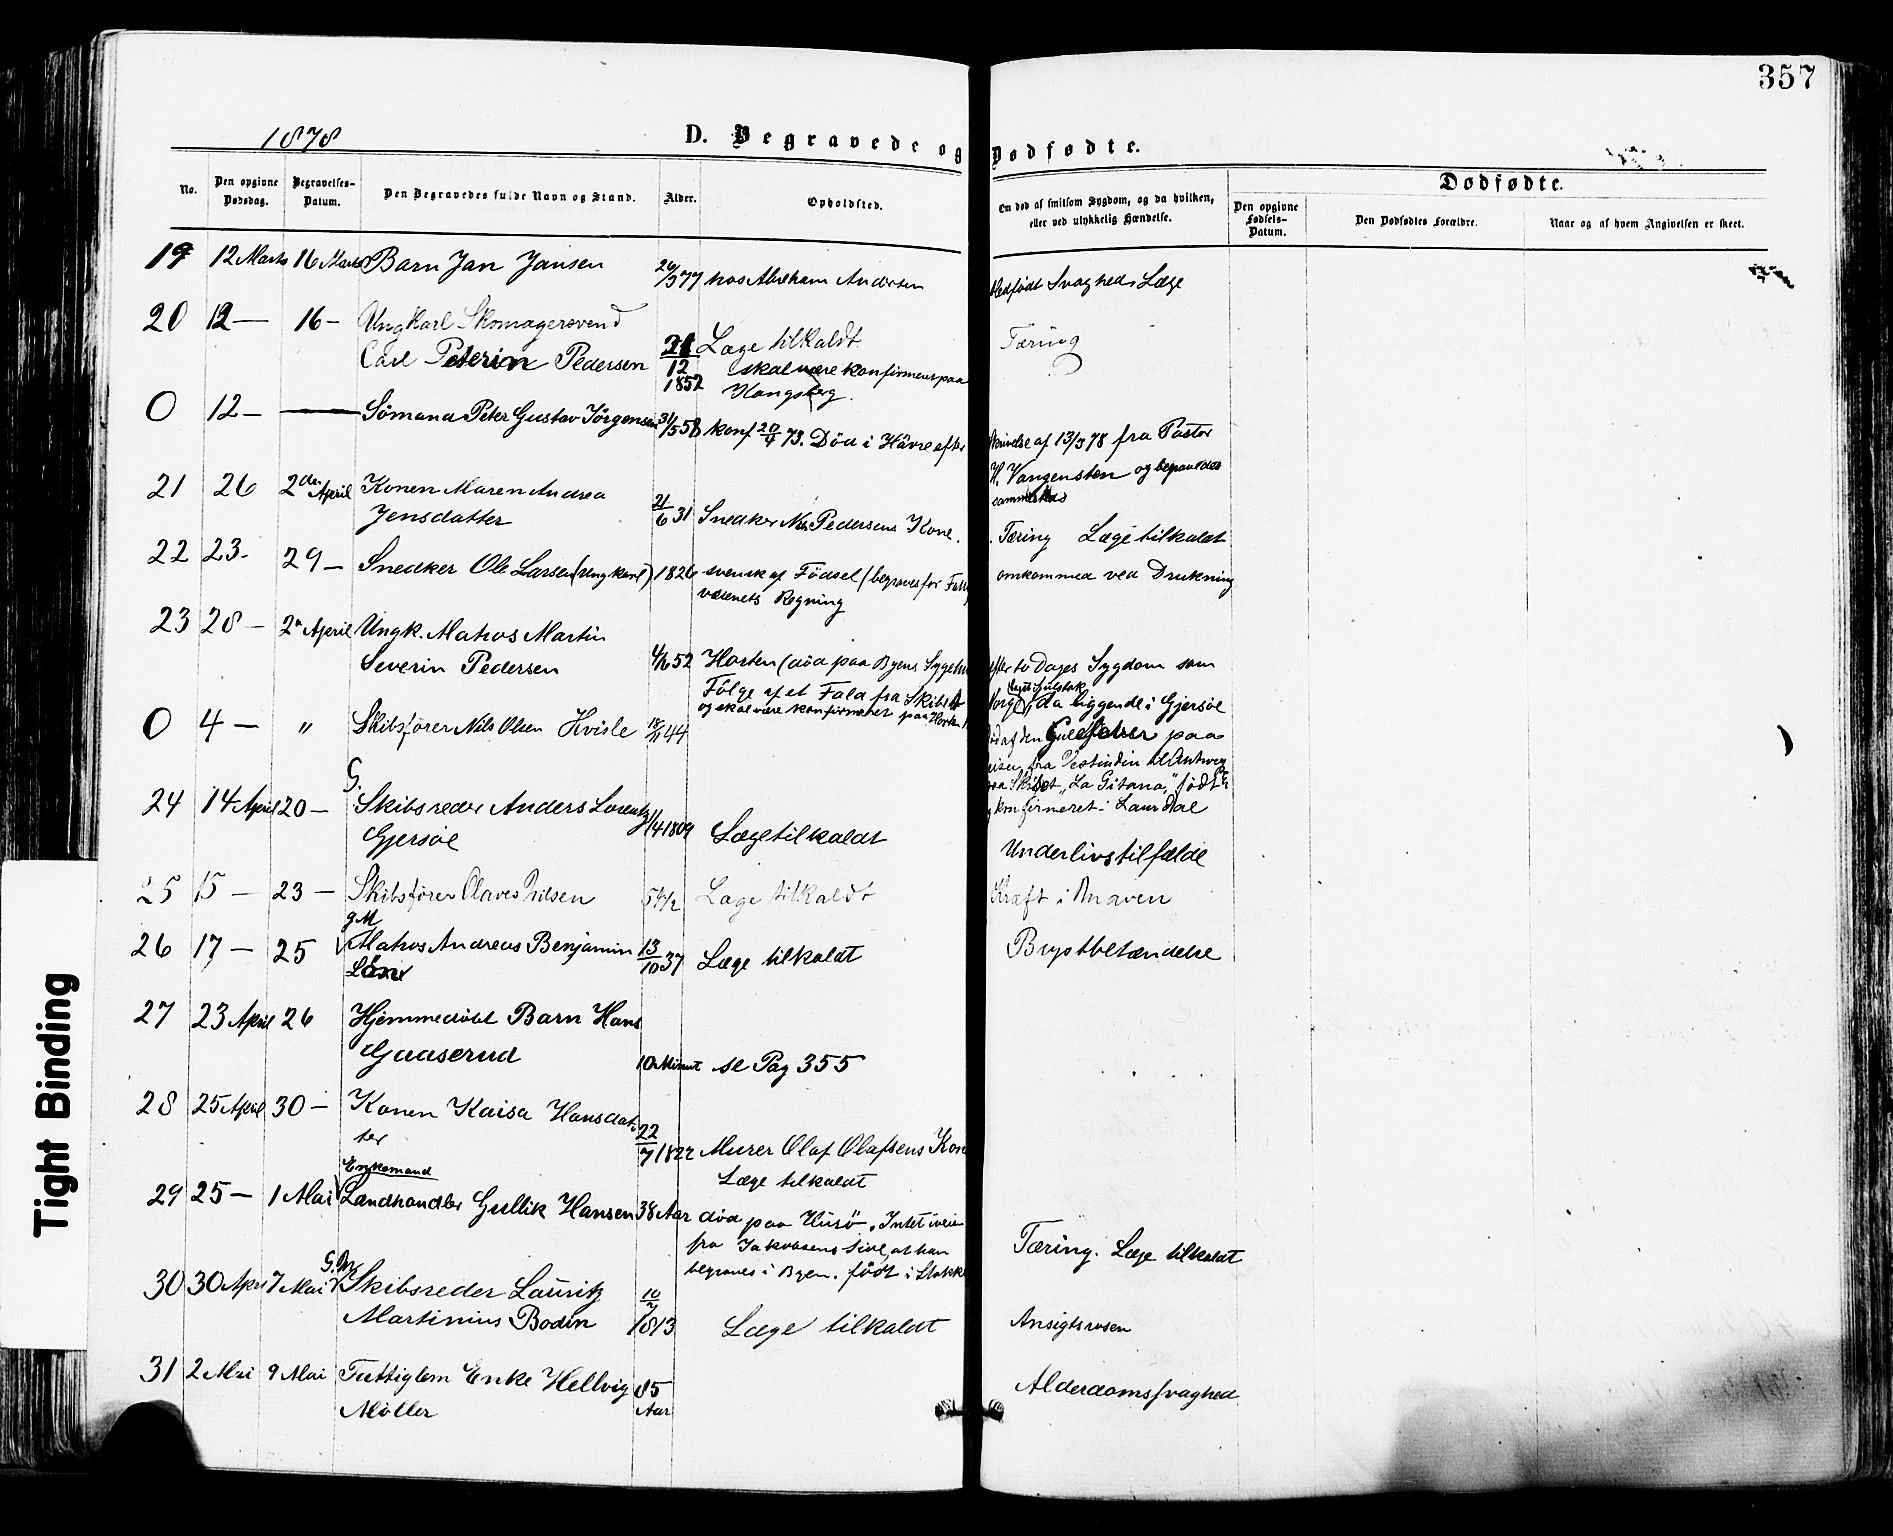 357
1878
D. Begravede og Dødfødte.
No.
Den opgivne Dødsdag.
Begravelses-Datum.
Den Begravedes fulde Navn og Stand.
Alder.
Opholdsted.
Om død af smitsom Sygdom, og da hvilken, eller ved ulykkelig Hændelse.
Dødfødte.
Den opgivne Fødsels-Datum.
Den Dødfødtes Forældre.
Naar og af hvem Angivelsen er skeet.
19 12 Marts 16 Marts Barn Jan Jansen 77 hos Abraham Andersen Medfødt Svaghed. Læge
20 12 — 16 — Ungkarl Skomagersvend
Carl Peterin Pedersen 21/12 1852 Læge tilkaldt Tæring
skal være konfirmeret paa
Kongsberg.
0 12 — — Sömand Peter Gustav Jörgensen 31/5 58 konf 20/4 73. Död i Hâvre efter Skrivelse af 13/3 78 fra Pastor
H. Vangensten og begravedes
sammesteds
21 26 2den April Konen Maren Andrea
Jensdatter 21/6 31 Snedker Pedersens Kone. Tæring Læge tilkaldt
22 23 — 29 — Snedker Ole Larsen (Ungkarl) 1826 svensk af Födsel (begraves for Fattig omkommed ved Drukning
væsenets Regning
23 28 — 2n April Ungk. Matros Martin
Severin Pedersen 4/6 52 Horten (död paa Byens Sygehus efter to Dages Sygdom som
Fölge af et Fald fra Skibet Norge, da liggende i Gjersøe
og skal være konfirmeret paa Horten
0 4 — " Skibsfører Nils Olsen Hvisle 18/11 44 död af den Gule Feber paa
Reisen fra Vestindin til Antwerp
paa Skibet "La Gitana," født
og konfirmeret i Laurdal
G.
24 14 April 20 — Skibsreder Anders Lorentz
Gjersøe 1/4 1809 Læge tilkaldt Underlivstilfælde
25 15 — 23 — Skibsfører Olaves Nilsen 54 1/2 Læge tilkaldt Kræft i Maven
g M
26 17 — 25 Matros Andreas Benjamin
13/10 37 Læge tilkaldt Brystbetændelse
27 23 April 26 Hjemmedöbt Barn Hans
Gaaserud 10 Minut se Pag 355
28 25 April 30 — Konen Kaisa Hansdat-
ter 22/7 1822 Murer Olaf Olafsens Kone
Læge tilkaldt
Enkemand
29 25 — 1 Mai Landhandler Gullik Hansen 38 Aar död paa Husö. Intet iveien
fra Jakobsens Side, at han
begraves i Byen. født i Stokke Tæring. Læge tilkaldt
G. M
30 30 April 7 Mai Skibsreder Lauritz
Martinius Bodin 10/7 1813 Læge tilkaldt Ansigtsrosen
31 2 Mai 9 Mai Fattiglem Enke Hellvig
Møller 85 Aar Alderdomssvaghed
Tight Binding